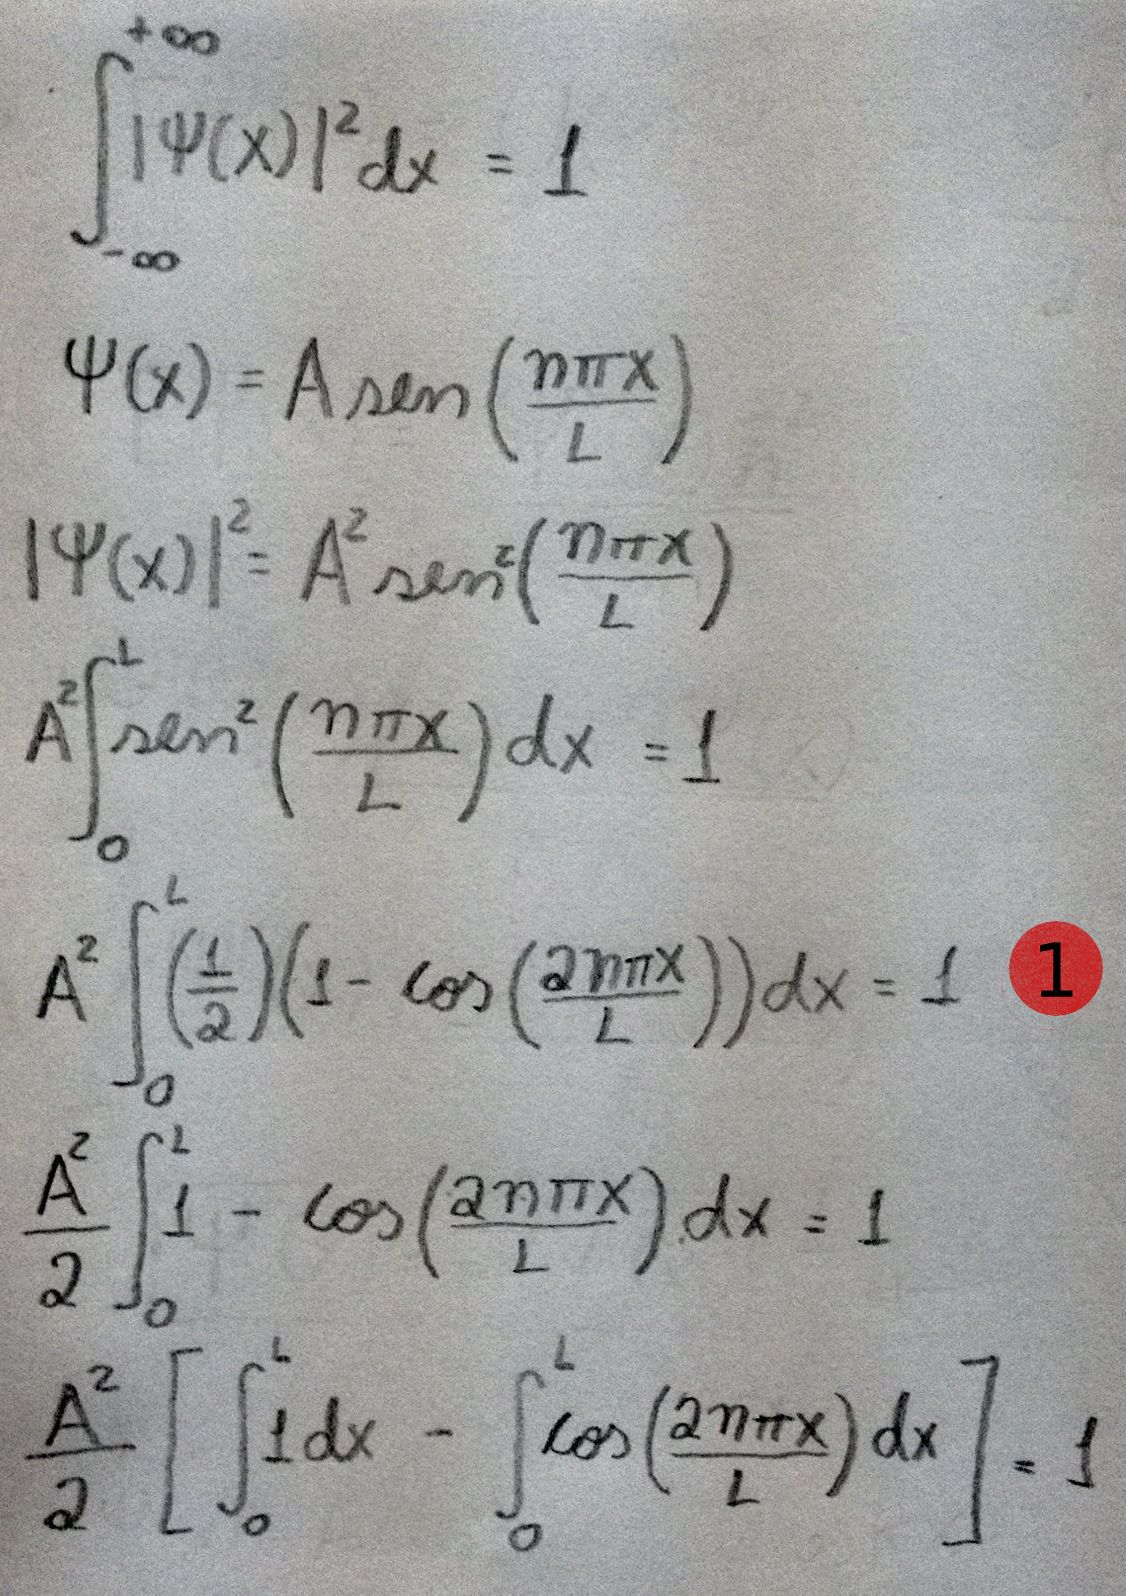 ∫₋∞^+∞ |Ψ(x)|² dx = 1
Ψ(x) = A sen(nπx/L)
|Ψ(x)|² = A² sen²(nπx/L)
A² ∫₀^L sen²(nπx/L) dx = 1
A² ∫₀^L (1/2)(1 - cos(2nπx/L)) dx = 1 1
A²/2 ∫₀^L 1 - cos(2nπx/L) dx = 1
A²/2 [∫₀^L 1 dx - ∫₀^L cos(2nπx/L) dx] = 1